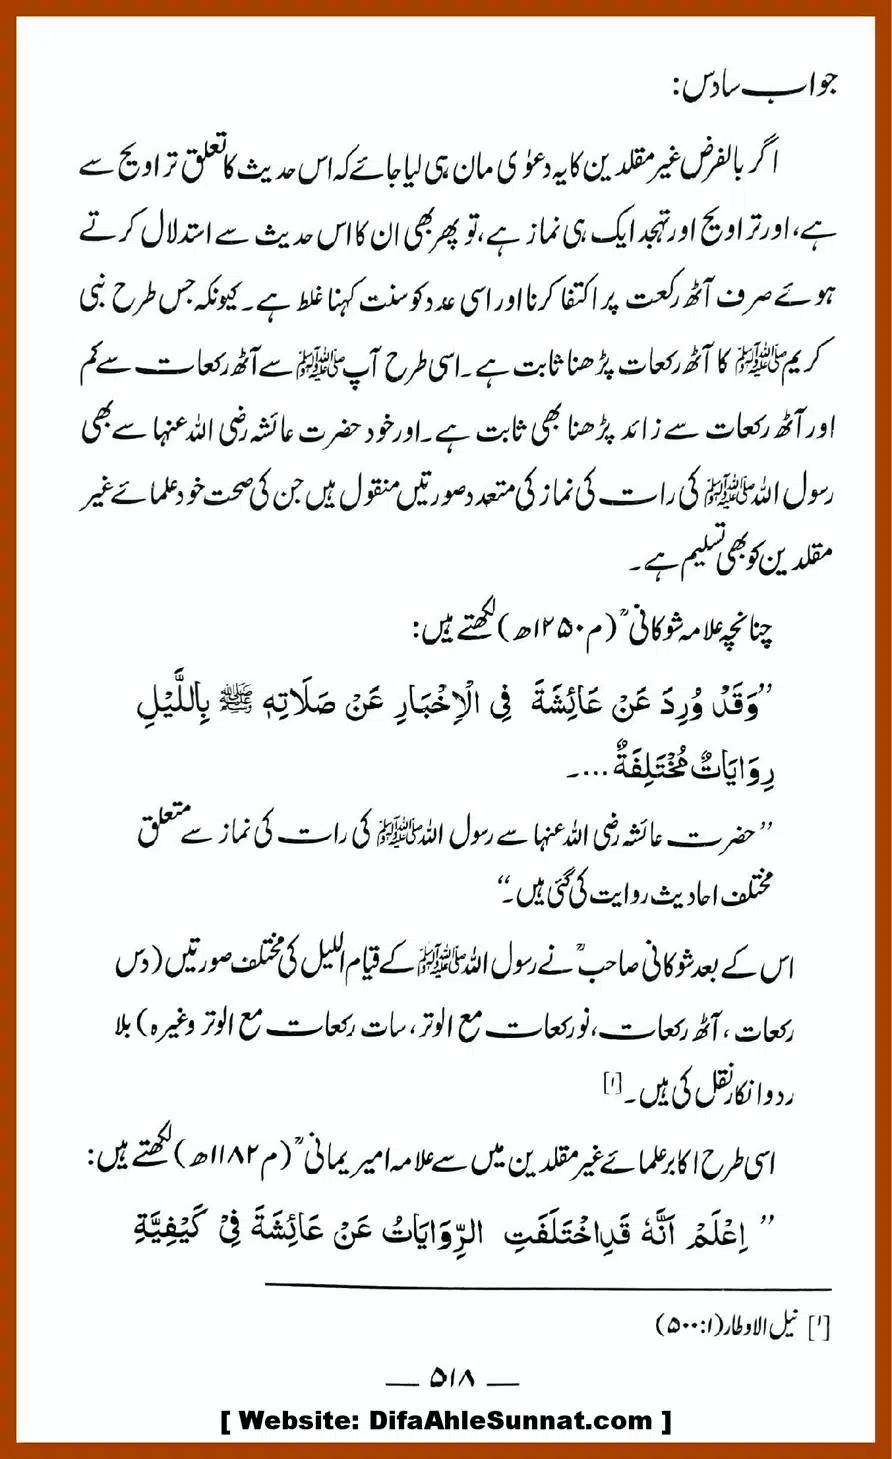 جواب سادس:
اگر بالفرض غیر مقلدین کا یہ دعوٰی مان ہی لیا جائے کہ اس حدیث کا تعلق تراویح سے
ہے، اور تراویح اور تہجد ایک ہی نماز ہے، تو پھر بھی ان کا اس حدیث سے استدلال کرتے
ہوئے صرف آٹھ رکعت پر اکتفا کرنا اور اسی عدد کو سنت کہنا غلط ہے۔ کیونکہ جس طرح نبی
کریم ﷺ کا آٹھ رکعات پڑھنا ثابت ہے۔ اسی طرح آپ ﷺ سے آٹھ رکعات سے کم
اور آٹھ رکعات سے زائد پڑھنا بھی ثابت ہے۔ اور خود حضرت عائشہ رضی اللہ عنہا سے بھی
رسول اللہ ﷺ کی رات کی نماز کی متعدد صورتیں منقول ہیں جن کی صحت خود علمائے غیر
مقلدین کو بھی تسلیم ہے۔
چنانچہ علامہ شوکانیؒ (م ۱۲۵۰ھ) لکھتے ہیں:
”وَقَدْ وُرِدَ عَنْ عَائِشَةَ فِی الْاِخْبَارِ عَنْ صَلَاتِهٖ ﷺ بِاللَّیْلِ
رِوَایَاتٌ مُخْتَلِفَةٌ ...۔
”حضرت عائشہ رضی اللہ عنہا سے رسول اللہ ﷺ کی رات کی نماز سے متعلق
مختلف احادیث روایت کی گئی ہیں۔“
اس کے بعد شوکانی صاحبؒ نے رسول اللہ ﷺ کے قیام اللیل کی مختلف صورتیں (دس
رکعات، آٹھ رکعات، نو رکعات مع الوتر، سات رکعات مع الوتر وغیرہ) بلا
ردوانکار نقل کی ہیں۔[۱]
اسی طرح اکابر علمائے غیر مقلدین میں سے علامہ امیر یمانیؒ (م ۱۱۸۲ھ) لکھتے ہیں:
”اِعْلَمْ اَنَّهٗ قَدِاخْتَلَفَتِ الرِّوَایَاتُ عَنْ عَائِشَةَ فِیْ كَیْفِیَّةِ
[۱] نیل الاوطار (۱:۵۰۰)
— ۵۱۸ —
[ Website: DifaAhleSunnat.com ]